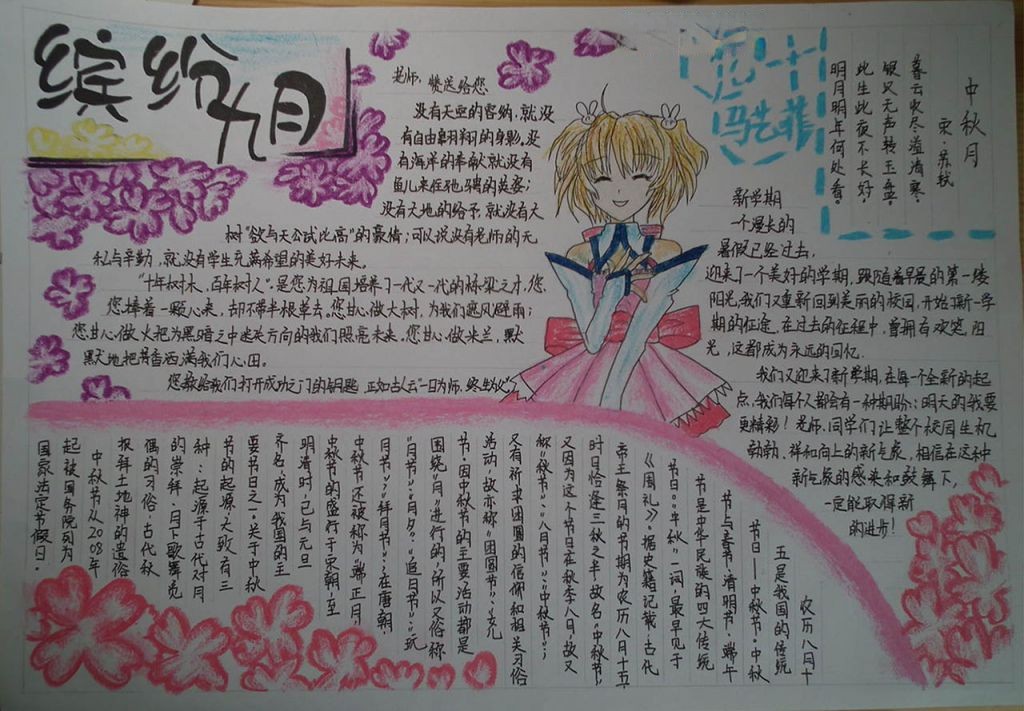 缤纷九月
老师，赞送给您
没有天空的容纳，就没
有自由翱翔的身影，没
有海洋的奉献就没有
鱼儿来往驰骋的英姿；
没有大地的给予，就没有大
树“欲与天公试比高”的豪情；可以说没有老师的无
私与辛勤，就没有学生充满希望的美好未来。
“十年树木，百年树人”。是您为祖国培养了一代又一代的栋梁之才，您
您捧着一颗心来，却不带半根草去。您甘心做大树，为我们避风避雨；
您甘心做火把为黑暗之中迷失方向的我们照亮未来。您甘心做米兰，默
默地把芳香洒满我们心田。
您教给我们打开成功之门的钥匙
正如古人云“一日为师，终生为父”。
九十
中秋月
宋·苏轼
暮云收尽溢清寒，
银汉无声转玉盘。
此生此夜不长好，
明月明年何处看。
新学期
一个漫长的
暑假已经过去，
迎来了一个美好的学期，跟随着早晨的第一缕
阳光，我们又重新回到美丽的校园，开始了新一学
期的征途。在过去的征程中，曾拥有欢笑，阳
光，这都成为永远的回忆。
我们又迎来了新学期，在每一个全新的起
点，我们每个人都会有一种期盼：明天的我要
更精彩！老师、同学们让整个校园生机
勃勃，祥和向上的新气象，相信在这种
新气象的感染和鼓舞下，
一定能取得新
的进步！
农历八月十
五是我国的传统
节日——中秋节。中秋
节与春节、清明节、端午
节是中华民族的四大传统
节日。“中秋”一词，最早见于
《周礼》。据史籍记载，古代
帝王祭月的节期为农历八月十五
时日恰逢三秋之半，故名“中秋节”
又因为这个节日在秋季八月，故又
称“秋节”、“八月节”、“中秋节”；
又有祈求团圆的信仰和相关习俗
活动，故亦称“团圆节”、“女儿
节”。因中秋节的主要活动都是
围绕“月”进行的，所以又俗称
“月节”、“月夕”、“追月节”、“玩
月节”、“拜月节”；在唐朝
中秋节还被称为“端正月
中秋节的盛行于宋朝，至
明清时，已与元旦
齐名，成为我国的主
要节日之一。关于中秋
节的起源，大致有三
种：起源于古代对月
的崇拜、月下歌舞觅
偶的习俗，古代秋
报拜土地神的遗俗
中秋节从2008年
起被国务院列为
国家法定节假日。